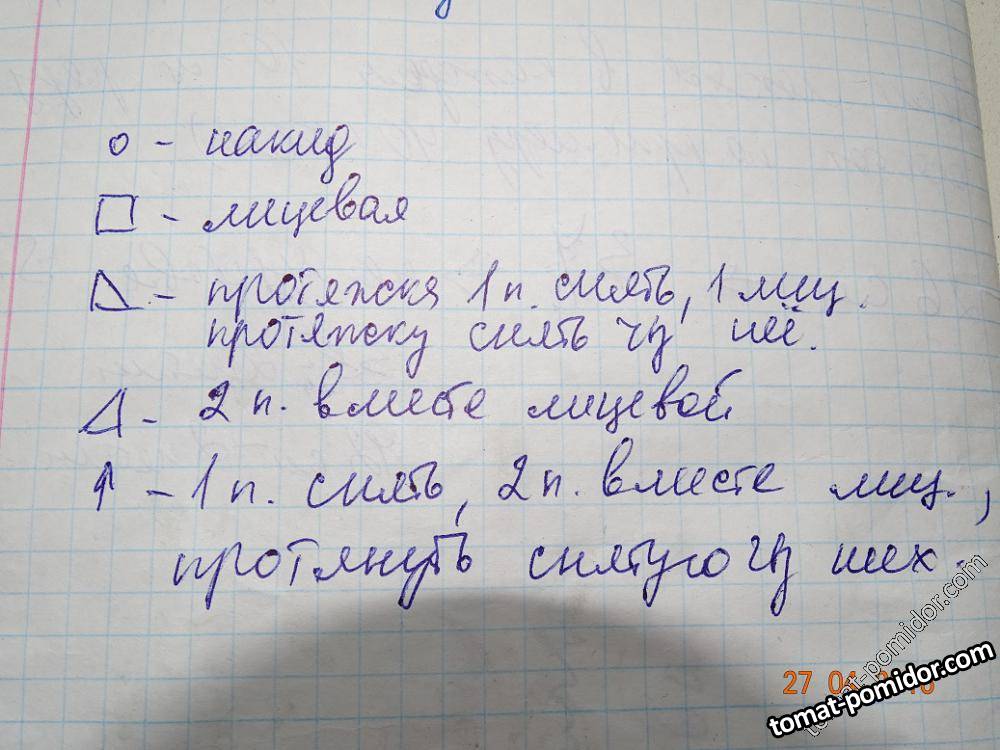 о - накид
□ - лицевая
◺ - протяжка 1 п. снять, 1 лиц.
протяжку снять чз неё.
◿ - 2 п. вместе лицевой
↑ - 1 п. снять, 2 п. вместе лиц.,
протянуть снятую чз них.
27 04
tomat-pomidor.com
tomat-pomidor.com